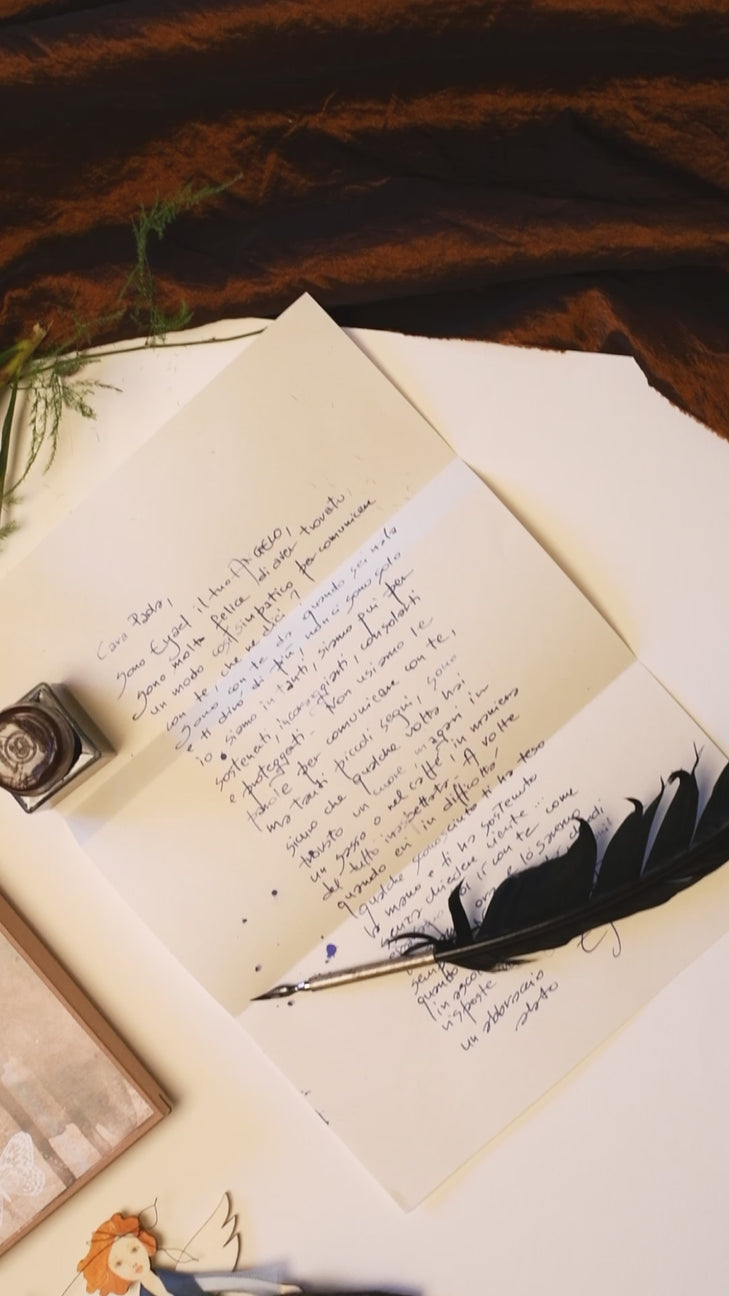 Cara Paola,
sono Eyael il tuo ANGELO,
sono molto felice di aver trovato
un modo così simpatico per comunicare
con te, che ne dici?
Sono con te da quando sei nata
e ti dirò di più, non ci sono solo
io siamo in tanti, siamo qui per
sostenerti, incoraggiarti, consolarti
e proteggerti. Non usiamo le
parole per comunicare con te,
ma tanti piccoli segni, sono
sicuro che qualche volta hai
trovato un cuore magari in
un sasso o nel caffè in maniera
del tutto inaspettata. A volte
quando eri in difficoltà
qualche sconosciuto ti ha teso
la mano e ti ha sostenuto
senza chiedere niente...
noi con te come
ora e lo saremo
quando
in asco
risposte
un abbraccio
alato